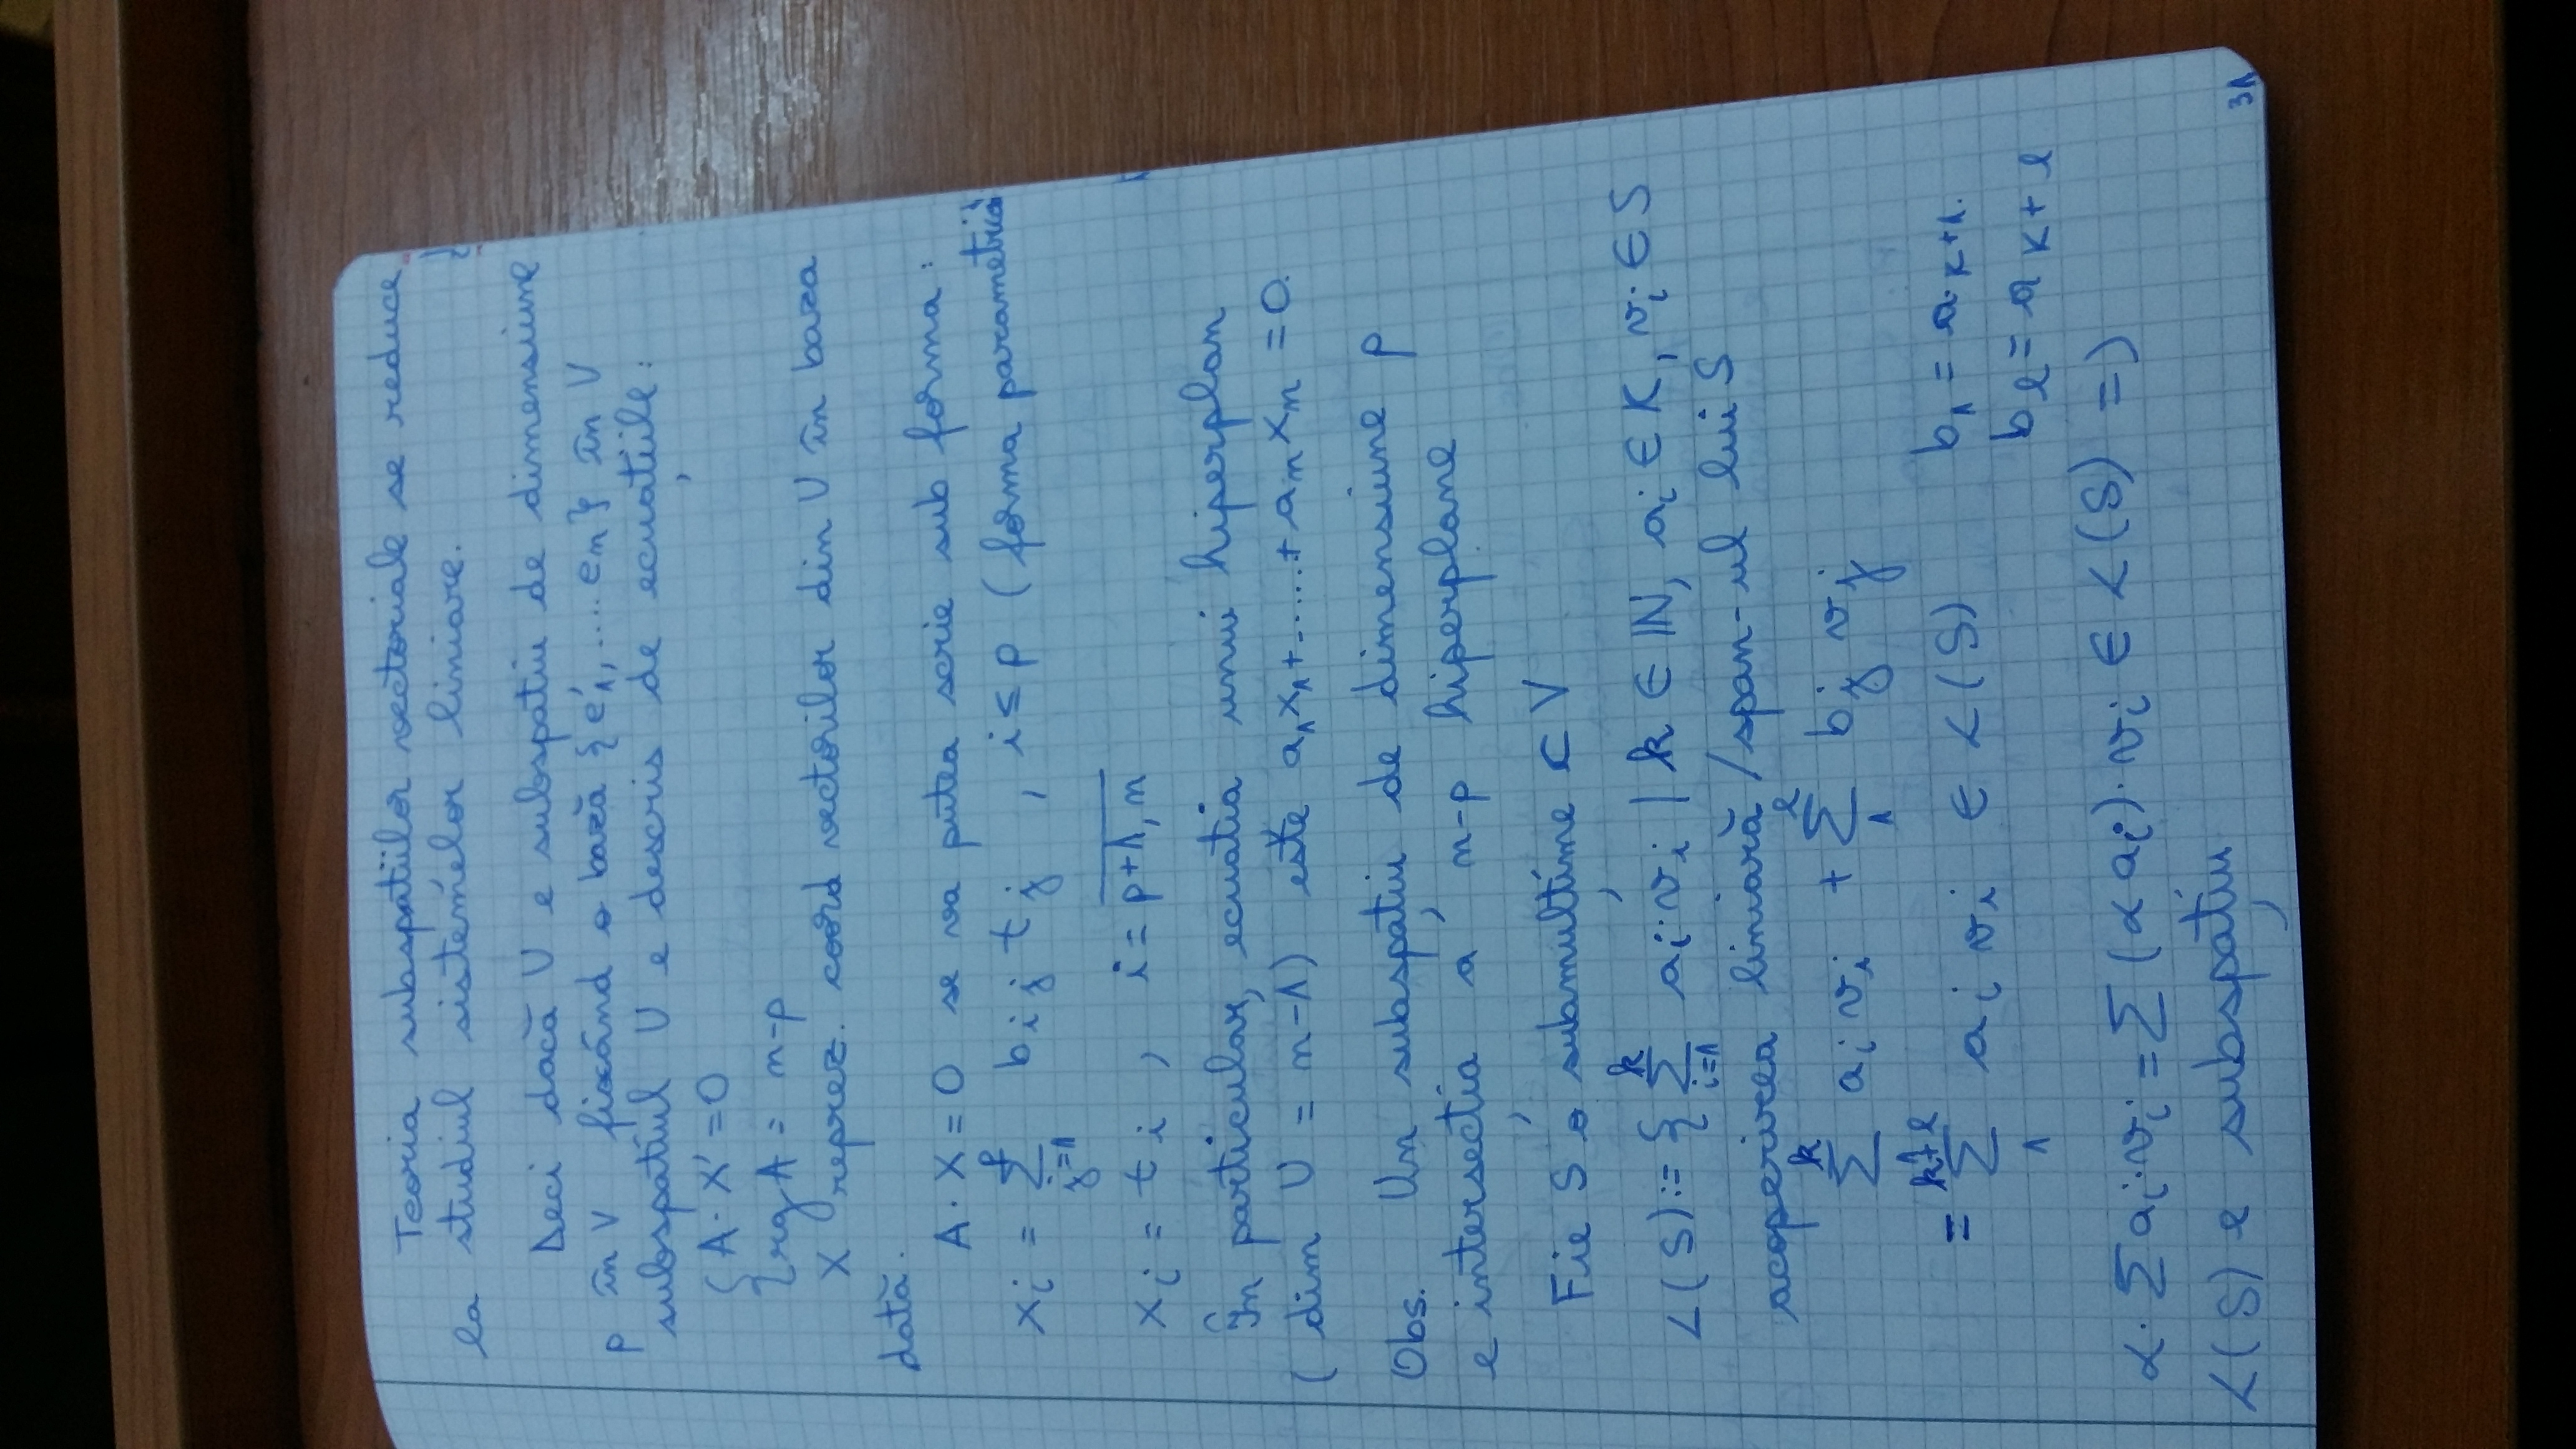 Teoria subspațiilor vectoriale se reduce
la studiul sistemelor liniare.
Deci dacă U e subspațiu de dimensiune
p în V fixând o bază {e₁, .... eₙ} în V
subspațiul U e descris de ecuațiile:
{ A · X = 0
{ rg A = n-p
X reprez. coord vectorilor din U în baza
dată.
A · X = 0 se va putea scrie sub forma:
xᵢ = Σ_{j=1}^{p} bᵢⱼ tⱼ , i ≤ p (forma parametrică
xᵢ = tᵢ , i = \overline{p+1, n}
În particular, ecuația unui hiperplan
(dim U = n-1) este a₁x₁+......+aₙxₙ = 0.
Obs. Un subspațiu de dimensiune p
e intersecția a n-p hiperplane
Fie S o submulțime ⊂ V
L(S) := { Σ_{i=1}^{k} aᵢ·vᵢ | k ∈ ℕ, aᵢ ∈ K, vᵢ ∈ S
acoperirea liniară / span-ul lui S
Σ^{k} aᵢ vᵢ + Σ_{1}^{l} bⱼ vⱼ
= Σ_{1}^{k+l} aᵢ vᵢ ∈ L(S) b₁ = a_{k+1}.
b_l = a_{k+l}
α · Σ aᵢ·vᵢ = Σ (α aᵢ)·vᵢ ∈ L(S) =>
L(S) e subspațiu
31